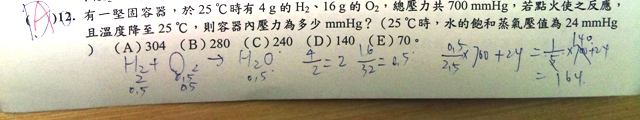 (A)12. 有一堅固容器，於 25 ℃時有 4 g 的 H₂、16 g 的 O₂，總壓力共 700 mmHg，若點火使之反應，
且溫度降至 25 ℃，則容器內壓力為多少 mmHg？(25 ℃時，水的飽和蒸氣壓值為 24 mmHg
) (A) 304 (B) 280 (C) 240 (D) 140 (E) 70。
H₂ + O₂ → H₂O 4/2 = 2 16/32 = 0.5 0.5/2.5 × 700 + 24 = 1/5 × 700 + 24
2 0.5 0.5 140
0.5 0.5 = 164